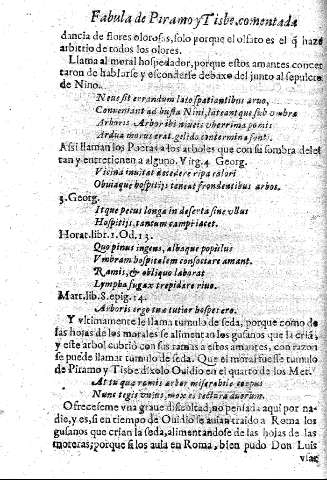 Fabula de Piramo y Tisbe, comentada
dancia de flores olorosas, solo porque el olfato es el q̃ haze
arbitrio de todos los olores.
Llama al moral hospedador, porque estos amantes concer
taron de hablarse y esconderse debaxo del junto al sepulcro
de Nino.
Neue sit errandum lato spatiantibus aruo,
Conueniant ad busta Nini, lateantque sub vmbra
Arboris. Arbor ibi niueis vberrima pomis
Ardua morus erat gelido contermina fonti.
Assi llaman los Poetas a los arboles que con su sombra delei
tan y entretienen a alguno. Virg. 4. Georg.
Vicina inuitat decedere ripa calori
Obuiaque hospitijs teneat frondentibus arbos.
3. Georg.
Itque pecus longa in deserta sine vllus
Hospitijs, tantum campi iacet.
Horat. lib. 1. Od. 13.
Quo pinus ingens, albaque populus
Vmbram hospitalem consociare amant.
Ramis, & obliquo laborat
Lympha fugax trepidare riuo.
Mart. lib. 8. epig. 14.
Arboris ergo tuæ tutior hospes ero.
Y vltimamente le llama tumulo de seda, porque como de
las hojas de los morales se alimentan los gusanos que la criã,
y este arbol cubrió con sus ramas a estos amantes, con razon
se puede llamar tumulo de seda. Que el moral fuesse tumulo
de Piramo y Tisbe dixolo Ouidio en el quarto de los Met.
At tu quæ ramis arbor miserabile corpus
Nunc tegis vnius, mox es tectura duorum.
Ofreceseme vna graue dificultad, no pensada aqui por na-
die, y es, si en tiempo de Ouidio se auian traido a Roma los
gusanos que crian la seda, alimentandose de las hojas de las
moreras, porque si los auia en Roma, bien pudo Don Luis